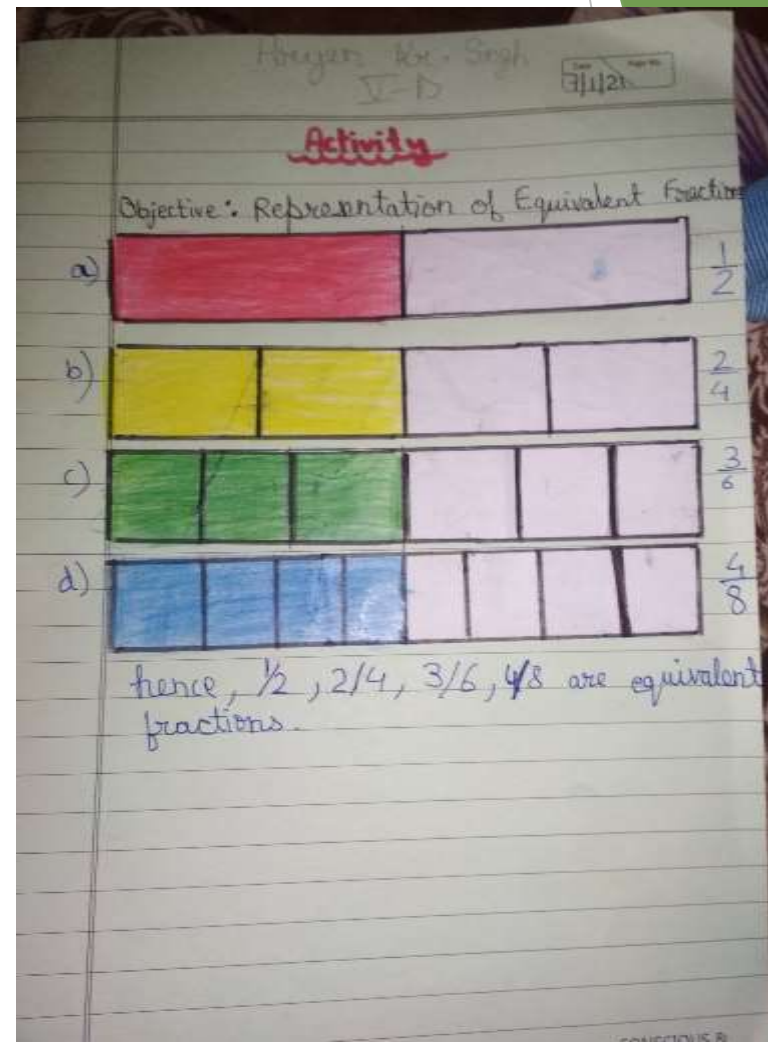 Kr. Singh
V-D
Date Page No.
7/1/21
Activity
Objective: Representation of Equivalent Fraction
a) 1/2
b) 2/4
c) 3/6
d) 4/8
hence, 1/2, 2/4, 3/6, 4/8 are equivalent
fractions.